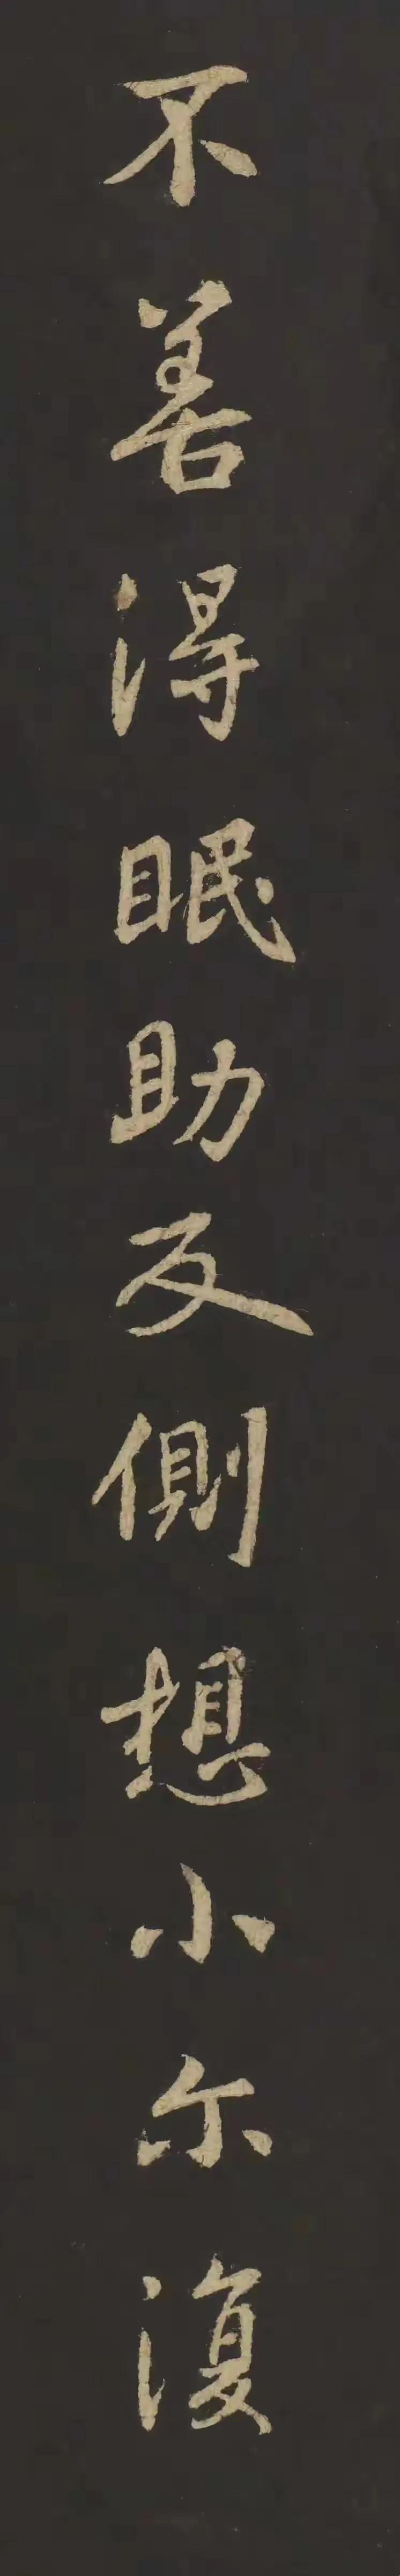 不善得眠助反側想小尔復